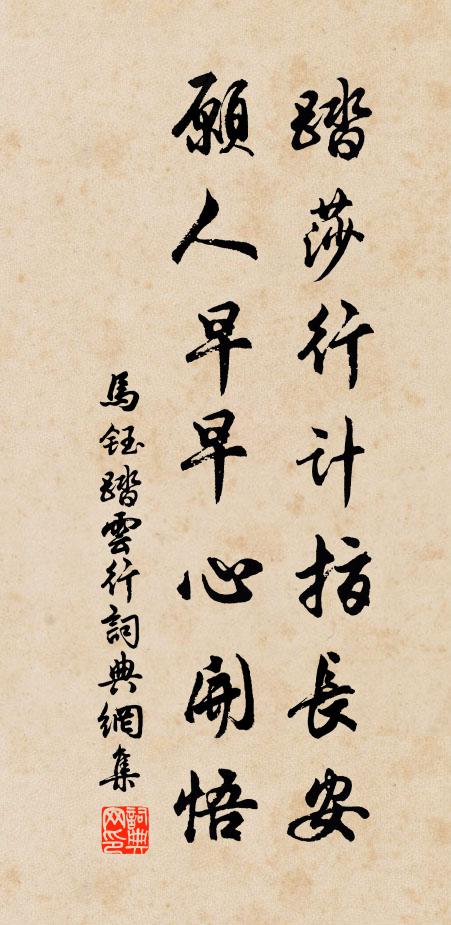 踏莎行計指長安
願人早早心開悟
馬鈺踏雲行詞典網集
詞典網印